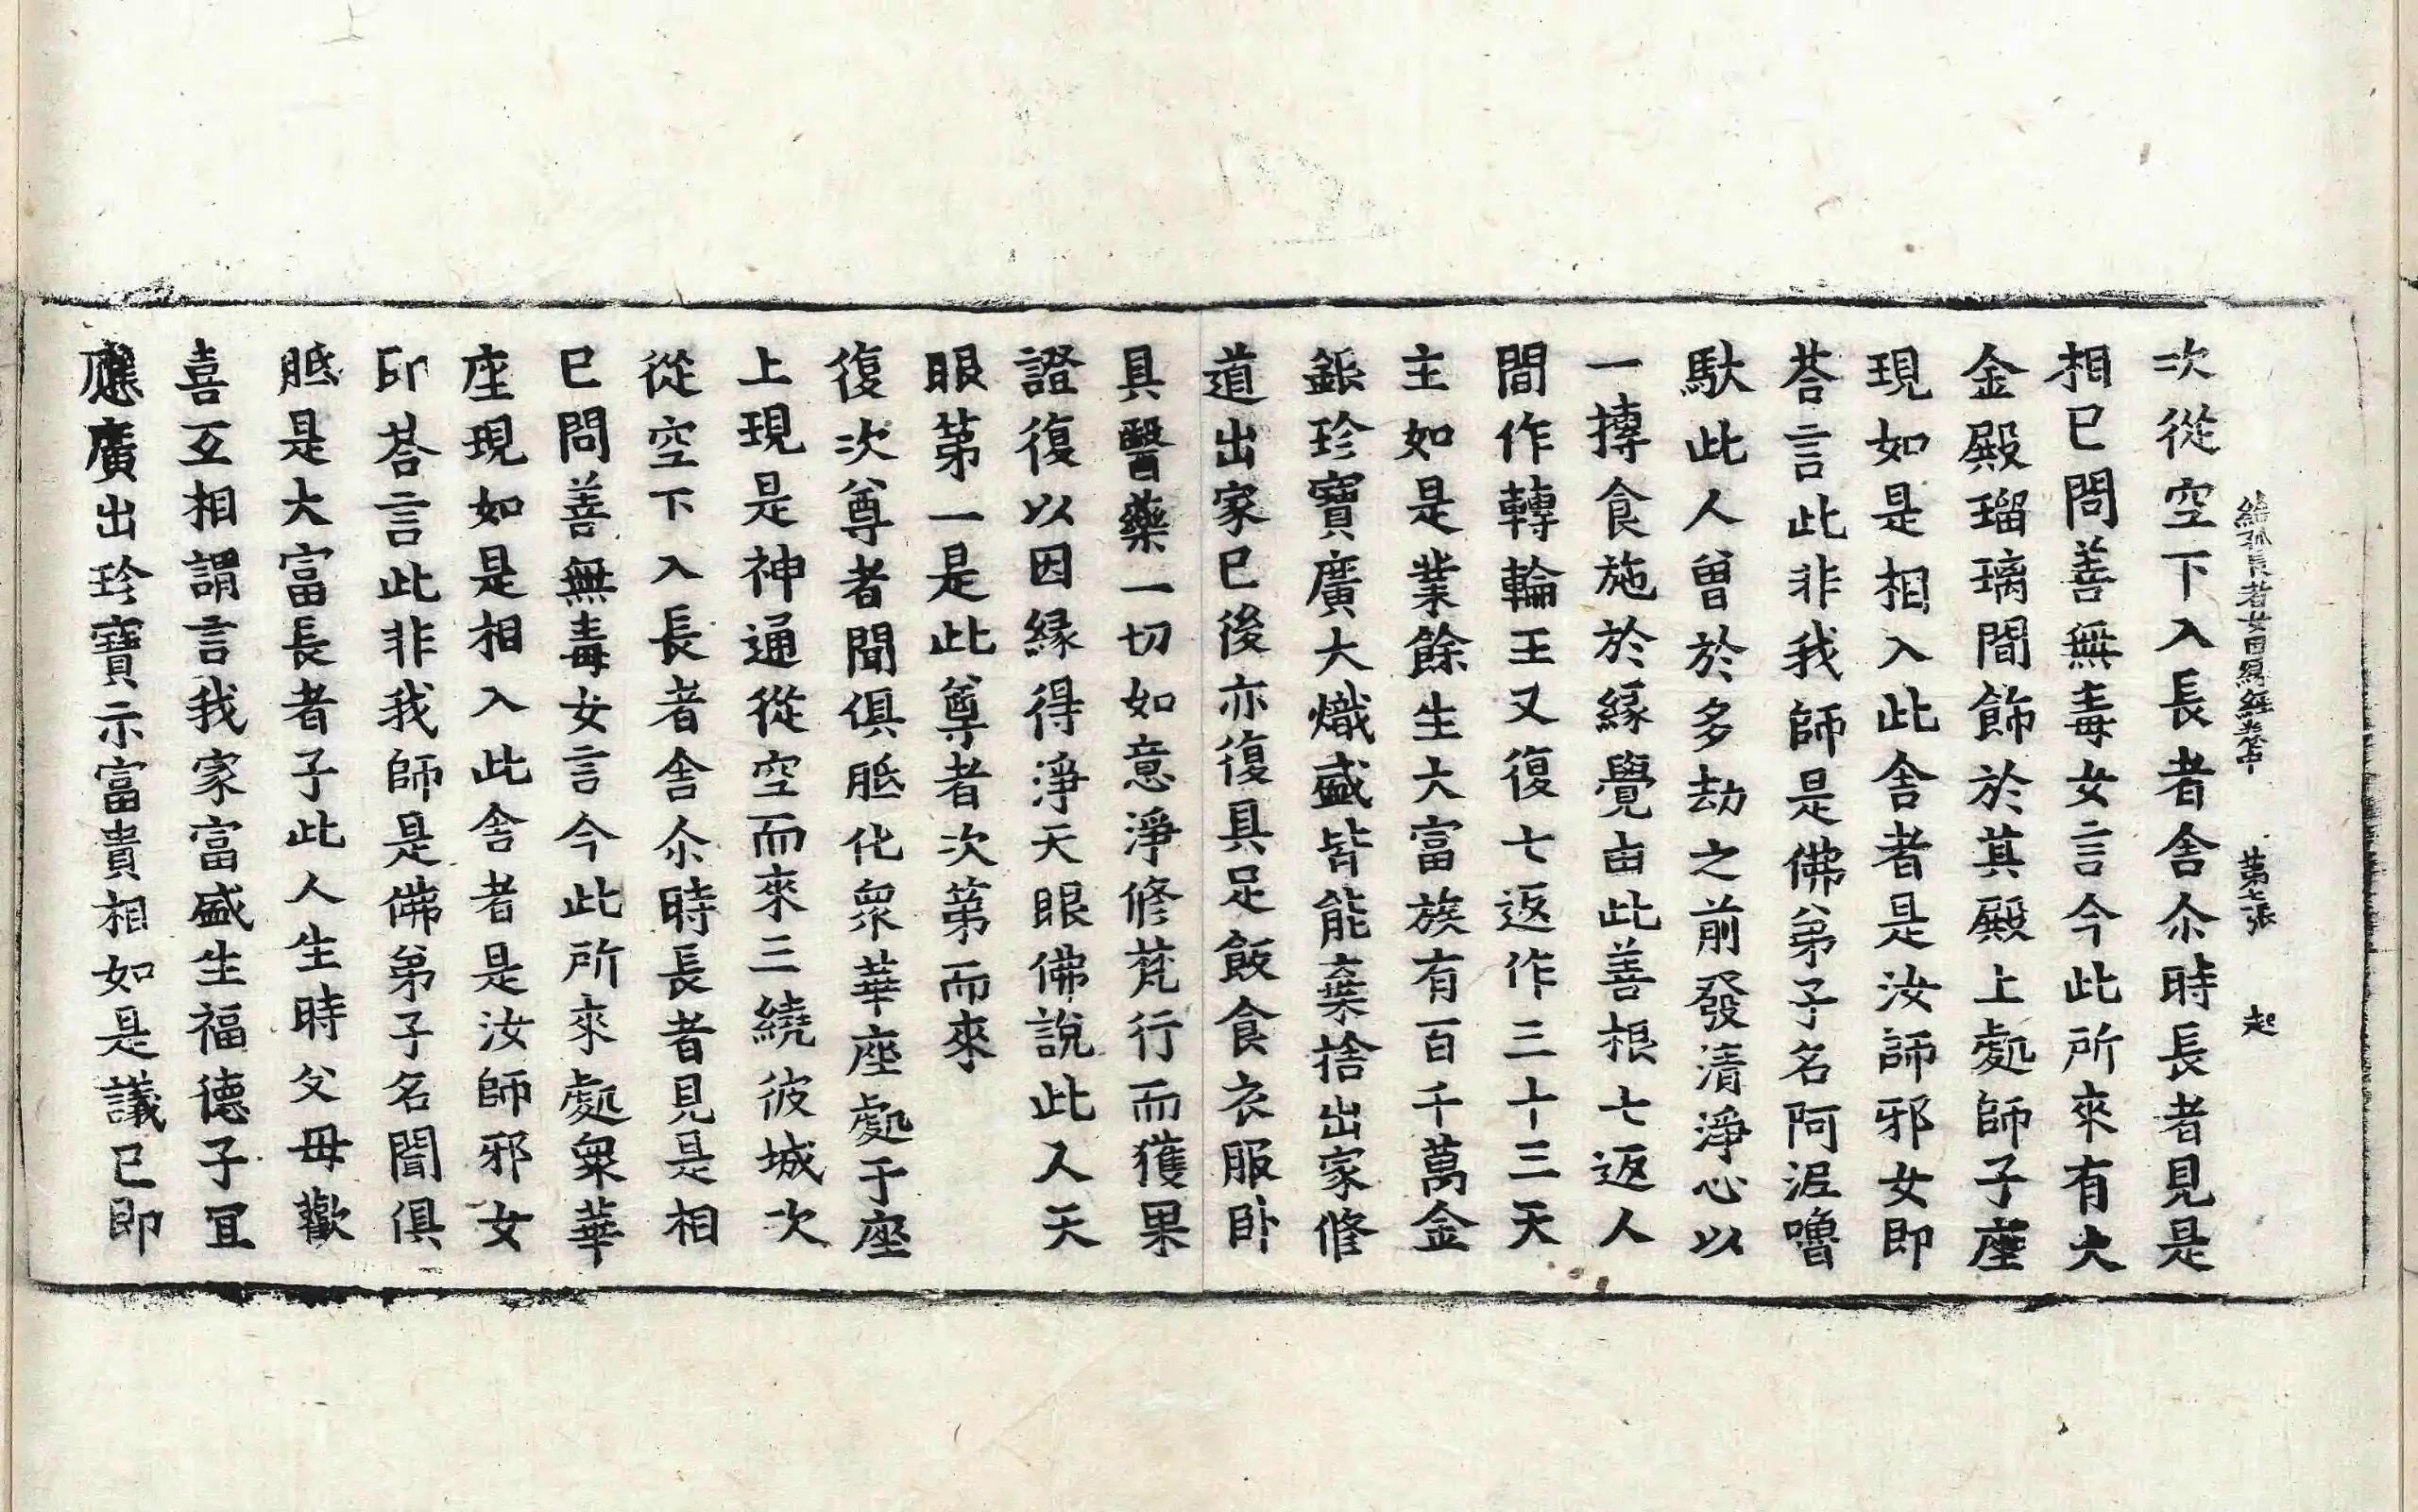 給孤長者女因緣經卷中 第七張 起
次從空下入長者舍尒時長者見是
相已問善無毒女言今此所來有大
金殿瑠璃間飾於其殿上處師子座
現如是相入此舍者是汝師邪女即
荅言此非我師是佛弟子名阿泥嚕
馱此人曾於多劫之前發清淨心以
一摶食施於緣覺由此善根七返人
間作轉輪王又復七返作三十三天
主如是業餘生大富族有百千萬金
銀珍寶廣大熾盛皆能棄捨出家修
道出家已後亦復具足飯食衣服卧
具醫藥一切如意淨修梵行而獲果
證復以因緣得淨天眼佛說此人天
眼第一是此尊者次第而來
復次尊者聞俱胝化衆華座處于座
上現是神通從空而來三繞彼城次
從空下入長者舍尒時長者見是相
已問善無毒女言今此所來處衆華
座現如是相入此舍者是汝師邪女
即荅言此非我師是佛弟子名聞俱
胝是大富長者子此人生時父母歡
喜互相謂言我家富盛生福德子宜
應廣出珍寶示富貴相如是議已即